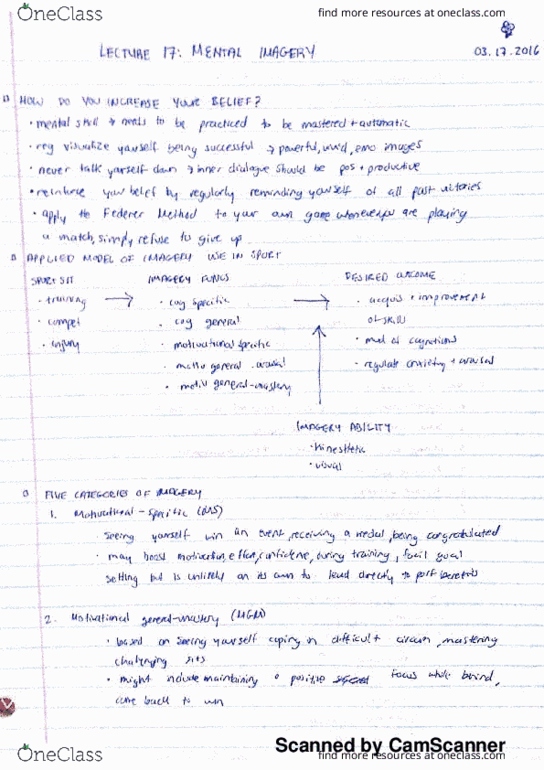 OneClass
find more resources at oneclass.com
LECTURE 17: MENTAL IMAGERY
03.17.2016
HOW DO YOU INCREASE YOUR BELIEF?
• mental skill → needs to be practiced to be mastered + automatic
• reg visualize yourself being successful → powerful, vivid, emo images
• never talk yourself down → inner dialogue should be pos + productive
• reinforce your belief by regularly reminding yourself of all past victories
• apply the Federer Method to your own game whenever you are playing
a match, simply refuse to give up
APPLIED MODEL OF IMAGERY USE IN SPORT
SPORT SIT IMAGERY FUNCS DESIRED OUTCOME
• training → • cog specific → • acquis + improvement
• compet • cog general of skill
• injury • motivational specific • mod of cognitions
• motiv general - arousal • regulate anxiety + arousal
• motiv general-mastery
IMAGERY ABILITY
• kinesthetic
• visual
FIVE CATEGORIES OF IMAGERY
1. Motivational-Specific (MS)
seeing yourself win an event, receiving a medal, being congratulated
• may boost motivation, effort, confidence, during training, facil goal
setting but is unlikely on its own to lead directly to perf benefits
2. Motivational general-mastery (MGM)
• based on seeing yourself coping in difficult circum, mastering
challenging sits
• might include maintaining a positive focus while behind,
come back to win
Scanned by CamScanner
OneClass
find more resources at oneclass.com